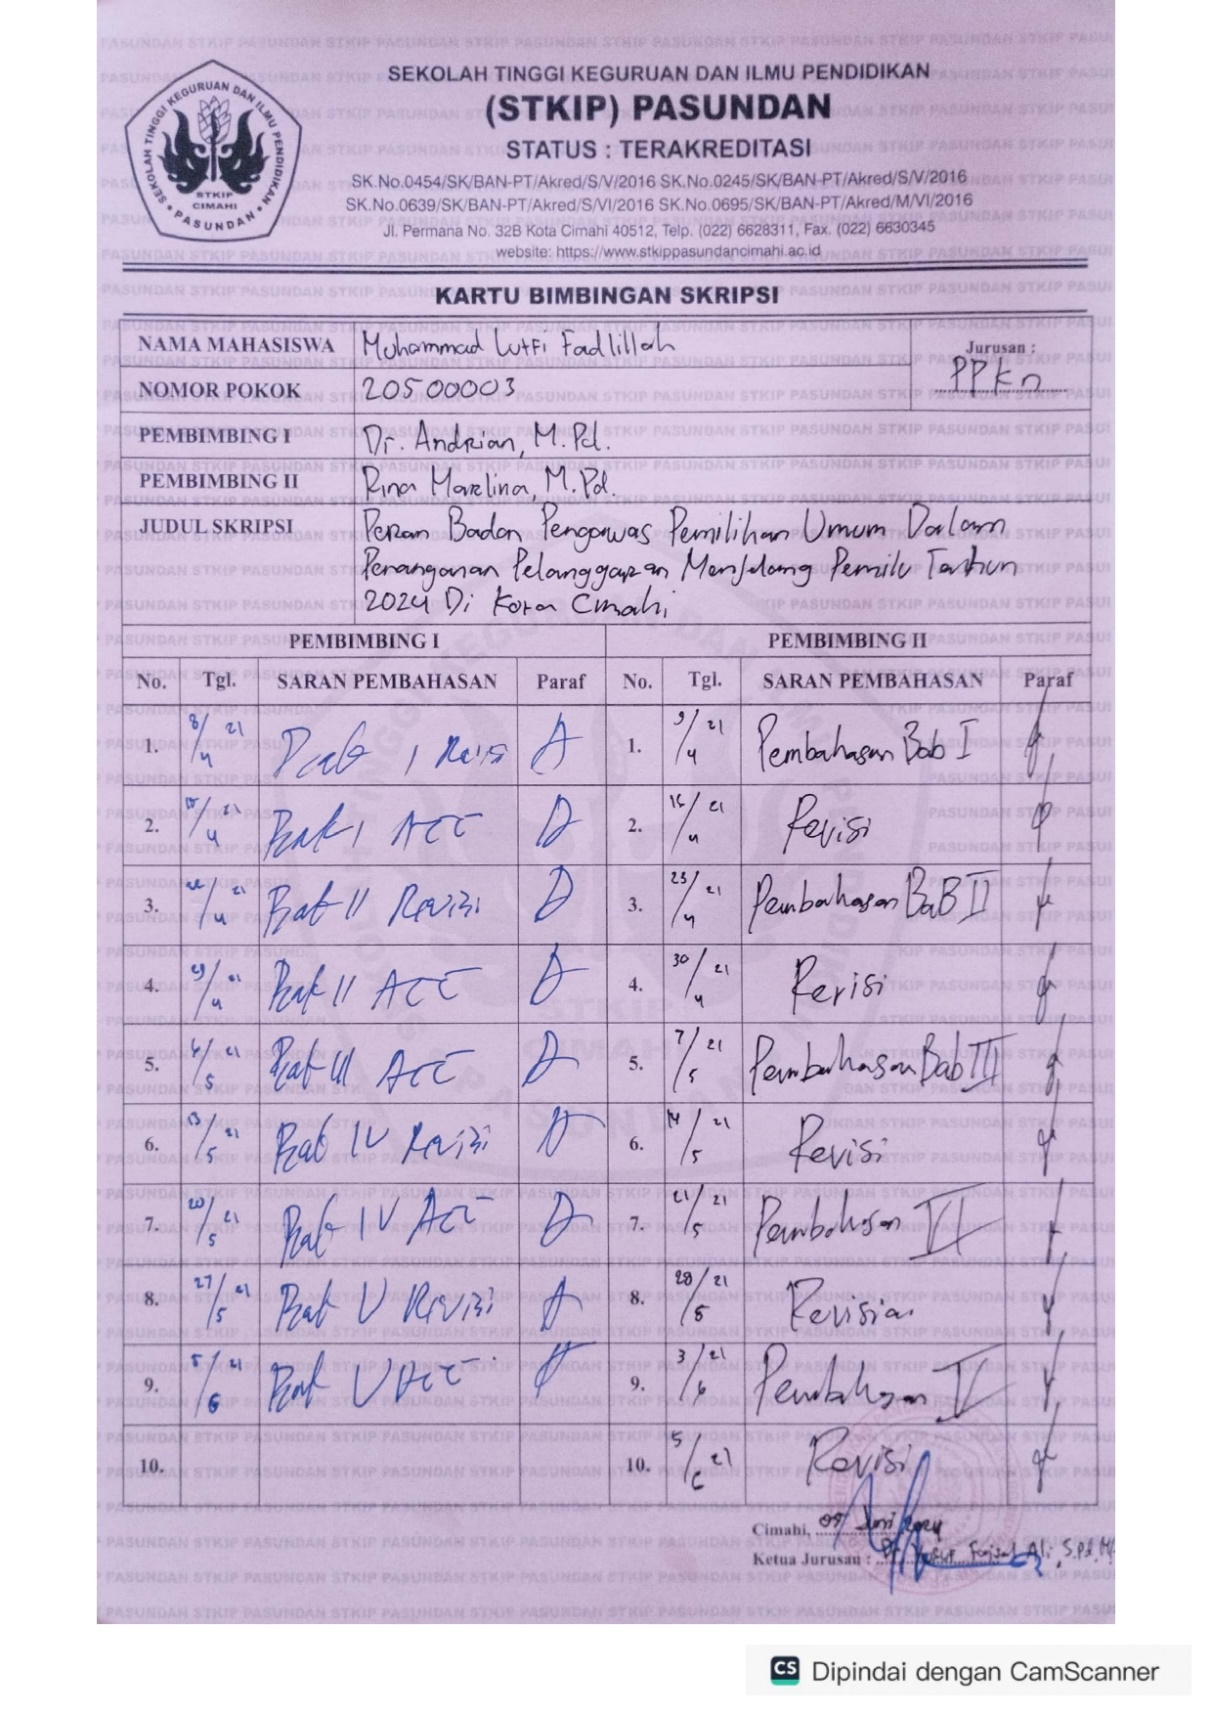 SEKOLAH TINGGI KEGURUAN DAN ILMU PENDIDIKAN
(STKIP) PASUNDAN
STATUS : TERAKREDITASI
SK.No.0454/SK/BAN-PT/Akred/S/V/2016 SK.No.0245/SK/BAN-PT/Akred/S/V/2016
SK.No.0639/SK/BAN-PT/Akred/S/VI/2016 SK.No.0695/SK/BAN-PT/Akred/M/VI/2016
Jl. Permana No. 32B Kota Cimahi 40512, Telp. (022) 6628311, Fax. (022) 6630345
website: https://www.stkippasundancimahi.ac.id
SEKOLAH TINGGI KEGURUAN DAN ILMU PENDIDIKAN
STKIP
CIMAHI
PASUNDAN
KARTU BIMBINGAN SKRIPSI
NAMA MAHASISWA Muhammad Lutfi Fadlillah
Jurusan :
PPKn
NOMOR POKOK 20500003
PEMBIMBING I Dr. Andrian, M.Pd.
PEMBIMBING II Rina Marlina, M.Pd.
JUDUL SKRIPSI Peran Badan Pengawas Pemilihan Umum Dalam
Penanganan Pelanggaran Menjelang Pemilu Tahun
2024 Di Kota Cimahi
PEMBIMBING I PEMBIMBING II
No. Tgl. SARAN PEMBAHASAN Paraf No. Tgl. SARAN PEMBAHASAN Paraf
1. 8/4 21 Bab I Revisi 1. 9/4 21 Pembahasan Bab I
2. 15/4 21 Bab I ACC 2. 16/4 21 Revisi
3. 22/4 21 Bab II Revisi 3. 23/4 21 Pembahasan BaB II
4. 29/4 21 Bab II ACC 4. 30/4 21 Revisi
5. 6/5 21 Bab III ACC 5. 7/5 21 Pembahasan Bab III
6. 13/5 21 Bab IV Revisi 6. 14/5 21 Revisi
7. 20/5 21 Bab IV ACC 7. 21/5 21 Pembahasan
8. 27/5 21 Bab V Revisi 8. 28/5 21 Revisian
9. 5/6 21 Bab V ACC 9. 3/6 21 Pembahasan V
10. 10. 5/6 21 Revisi
Cimahi, Juni 2024
Ketua Jurusan : Ali, S.Pd
CS Dipindai dengan CamScanner